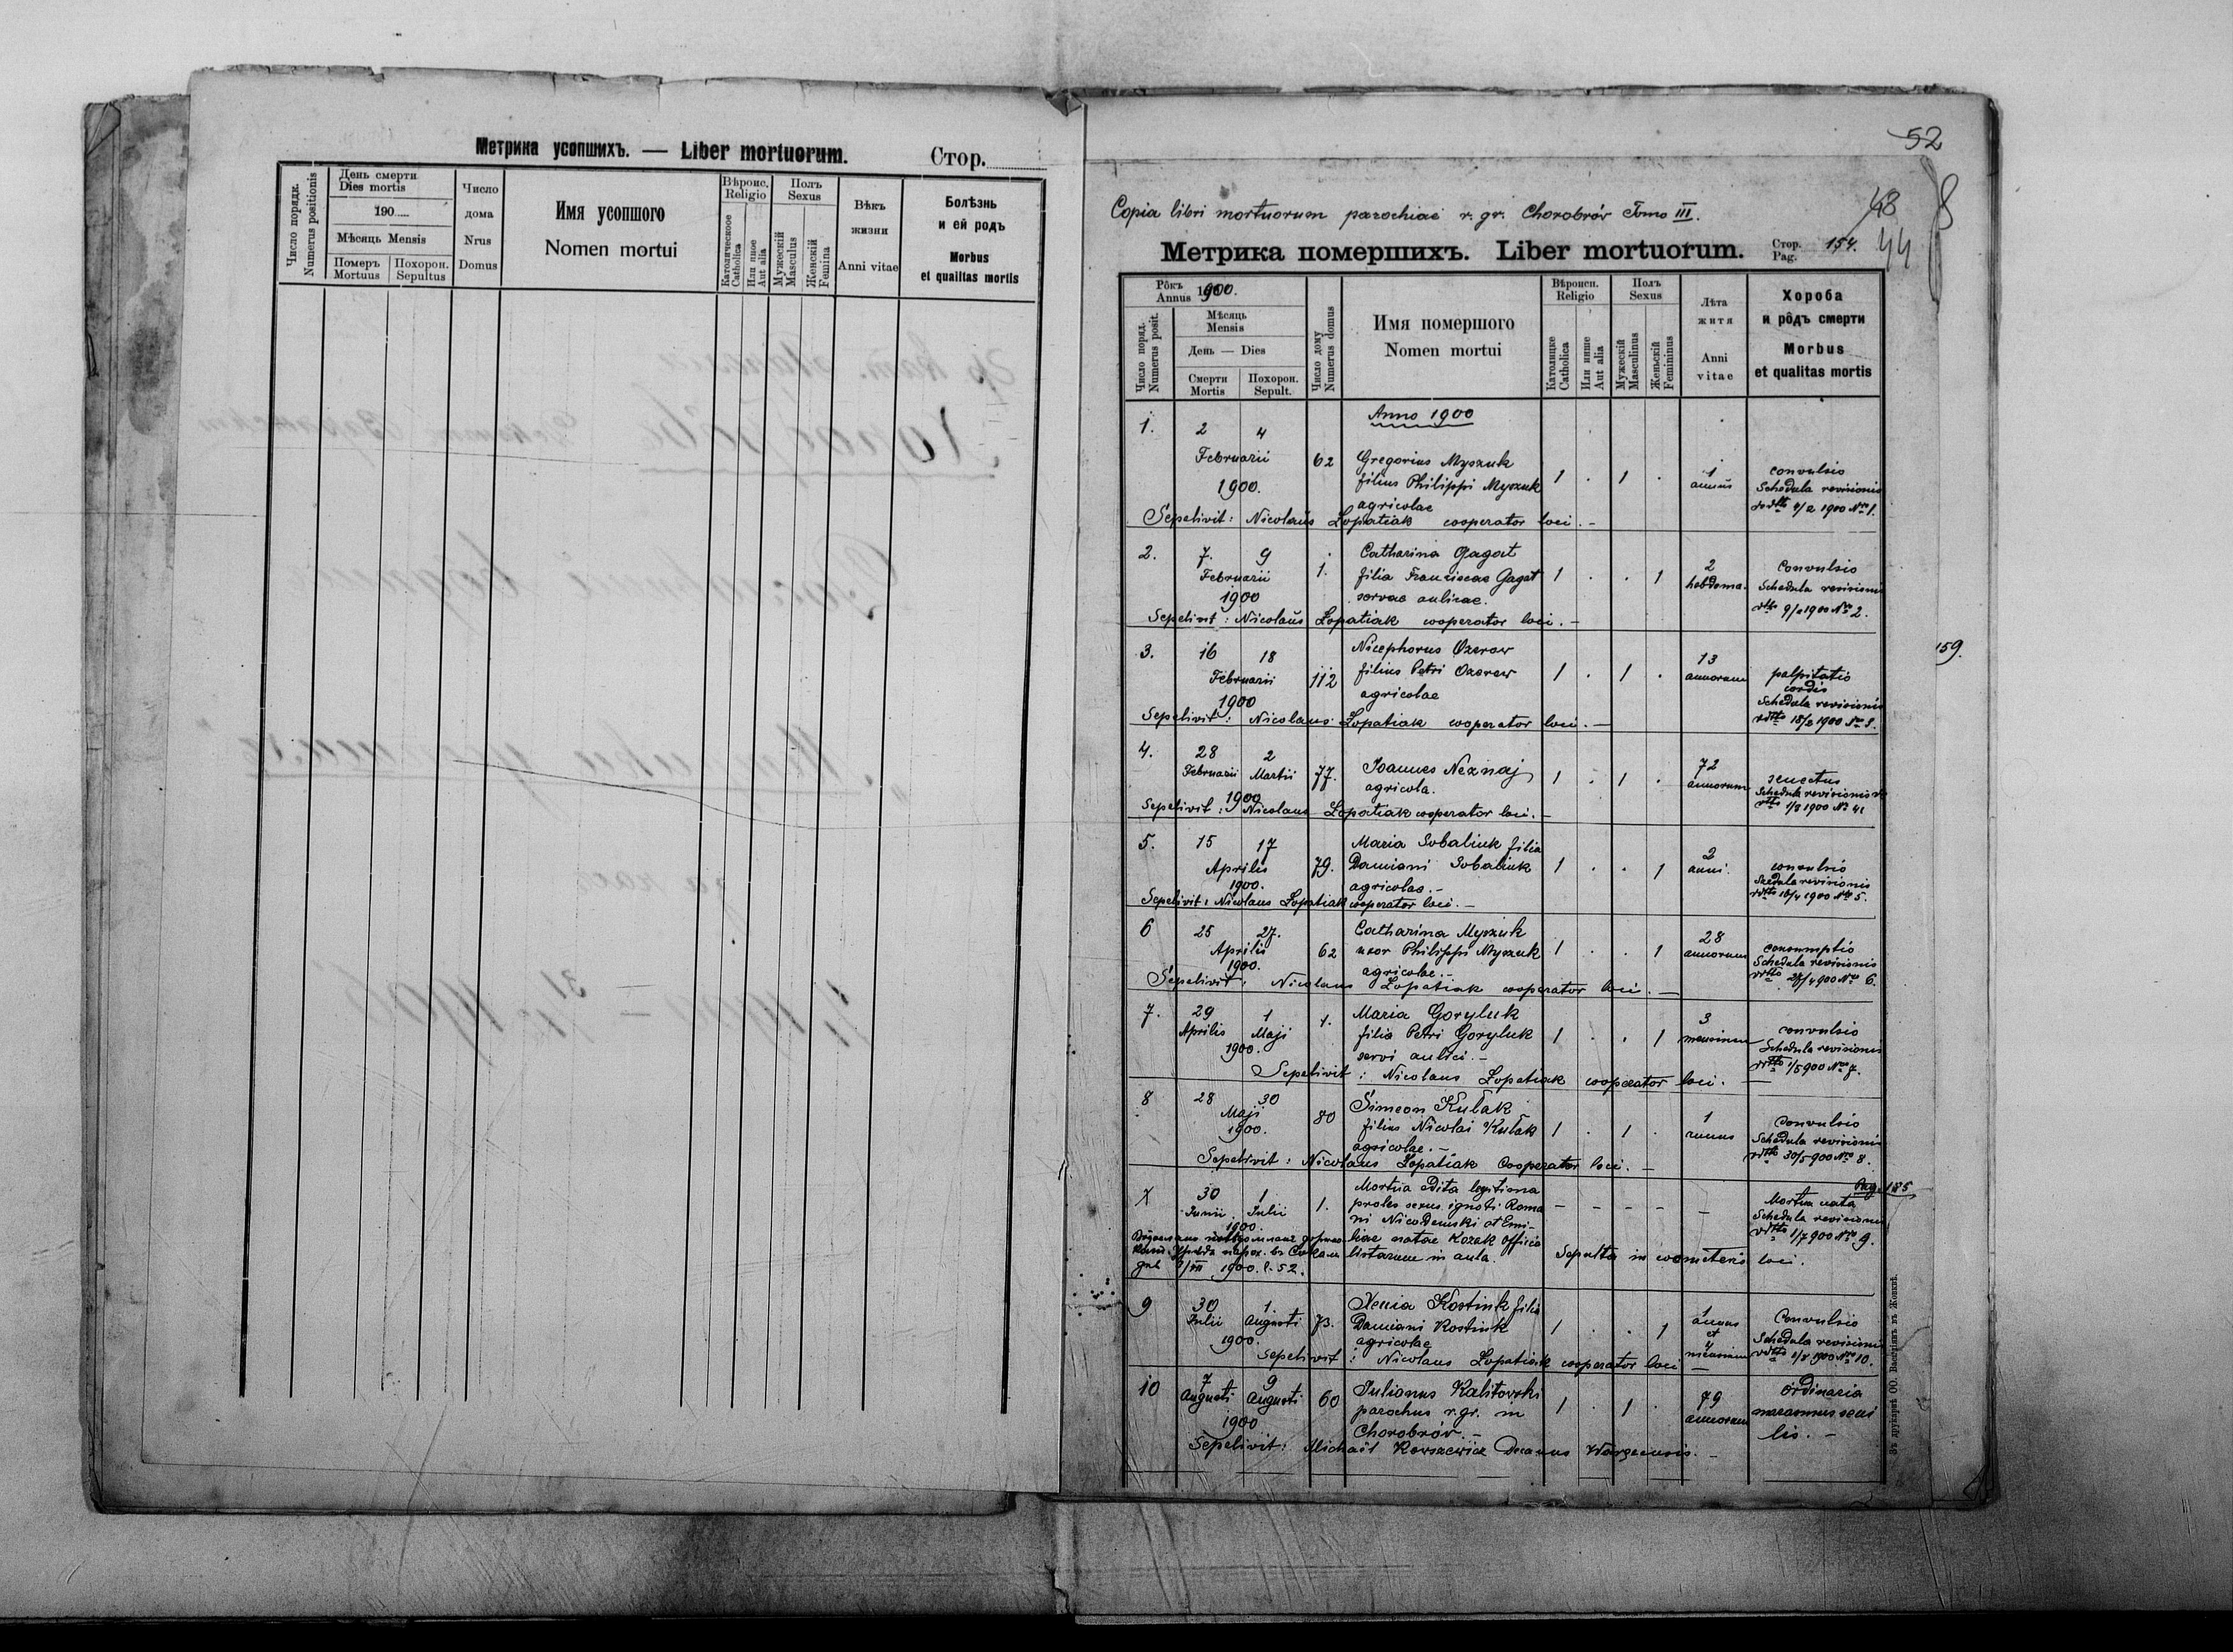 Метрика усопшихъ. — Liber mortuorum. Стор.
Число порядк.
Numerus positionis
День смерти
Dies mortis
190
Мѣсяць Mensis
Померъ
Mortuus
Похорон.
Sepultus
Число
дома
Nrus
Domus
Имя усопшого
Nomen mortui
Вѣроис.
Religio
Католическое
Catholica
Или иное
Aut alia
Полъ
Sexus
Мужескій
Masculus
Женскій
Femina
Вѣкъ
жизни
Anni vitae
Болѣзнь
и ей родъ
Morbus
et qualitas mortis
52
48
44
Copia libri mortuorum parochiae r. gr. Chorobrów Tomo III.
Метрика помершихъ. Liber mortuorum.
Стор.
Pag. 154.
Рôкъ
Annus 1900.
Число поряд.
Numerus posit.
Мѣсяць
Mensis
День — Dies
Смерти
Mortis
Похорон.
Sepult.
Число дому
Numerus domus
Имя помершого
Nomen mortui
Вѣроисп.
Religio
Католицке
Catholica
Или инше
Aut alia
Полъ
Sexus
Мужескій
Masculinus
Женьскій
Femininus
Лѣта
житя
Anni
vitae
Хороба
и рôдъ смерти
Morbus
et qualitas mortis
Anno 1900
1. 2 4
Februarii 62 Gregorius Myszuk
1900. filius Philippi Myszuk 1 . 1 . 1 convulsio
agricolae Schedula revisionis
4/2 1900 Nro 1.
Sepelivit: Nicolaus Lopatiak cooperator loci. —
2. 7. 9 1. Catharina Gagat
Februarii filia Franciscae Gagat 1 . . 1 2 hebdoma. Convulsio
1900 servae aulicae. Schedula revisionis
9/2 1900 Nro 2.
Sepelivit: Nicolaus Lopatiak cooperator loci. —
3. 16 18 Nicephorus Ozerow
Februarii 112 filius Petri Ozerow 1 . 1 . 13 annorum palpitatio
cordis
1900 agricolae Schedula revisionis
18/2 1900
159.
Sepelivit: Nicolaus Lopatiak cooperator loci. —
4. 28 2
Februarii Martii 77. Joannes Neznaj 1 . 1 . 72 annorum senectus
1900 agricola. Schedula revisionis
1/3 1900
Sepelivit: Nicolaus Lopatiak cooperator loci. —
5. 15 17 Maria Sobaliuk filia
Aprilis 79. Damiani Sobaliuk 1 . . 1 2 anni. convulsio
1900. agricolae. — revisionis
1900 Nro 5.
Sepelivit: Nicolaus Lopatiak cooperator loci. —
6 25 27. Catharina Myszuk
Aprilis 62 uxor Philippi Myszuk 1 . . 1 28 annorum consumptio
1900. agricolae. — Schedula revisionis
900 Nro 6.
Sepelivit: Nicolaus Lopatiak cooperator loci. —
7. 29 1 1. Maria Goryluk
Aprilis Maji filia Petri Goryluk 1 . . 1 3 mensium convulsio
1900. servi aulici. — Schedula revisionis
1/5 900 Nro 7.
Sepelivit: Nicolaus Lopatiak cooperator loci. —
8 28 30 Simeon Kułak
Maji 80 filius Nicolai Kułak 1 . 1 . 1 annus convulsio
1900. agricolae. — Schedula revisionis
30/5 900 Nro 8.
Sepelivit: Nicolaus Lopatiak Cooperator loci. —
Pag. 185
X 30 1 Mortua edita legitima
Junii Julii 1. proles sexus ignoti Roma — — — — — Mortua nata
1900. ni Nicodemski et Emi- Schedula revisionis
liae natae Kozak officia 1/7 900 Nro 9.
listarum in aula. Sepulta in loci.
1900. 52.
9 30 1. Xenia Kostiuk filia
Julii Augusti 73. Damiani Kostiuk 1 . . 1 1 annus et mensium Convulsio
1900. agricolae Schedula revisionis
1/8 1900 Nro 10.
Sepelivit: Nicolaus Lopatiak cooperator loci —
10 7 9 Julianus Kalitovski
Augusti Augusti 60 parochus r. gr. in 1 . 1 . 79 annorum ordinaria
1900 Chorobrów. — marasmus seni
lis. —
Sepelivit: Michaël Decanus
Въ друкарнѣ ОО. Василіянъ въ Жовквѣ.